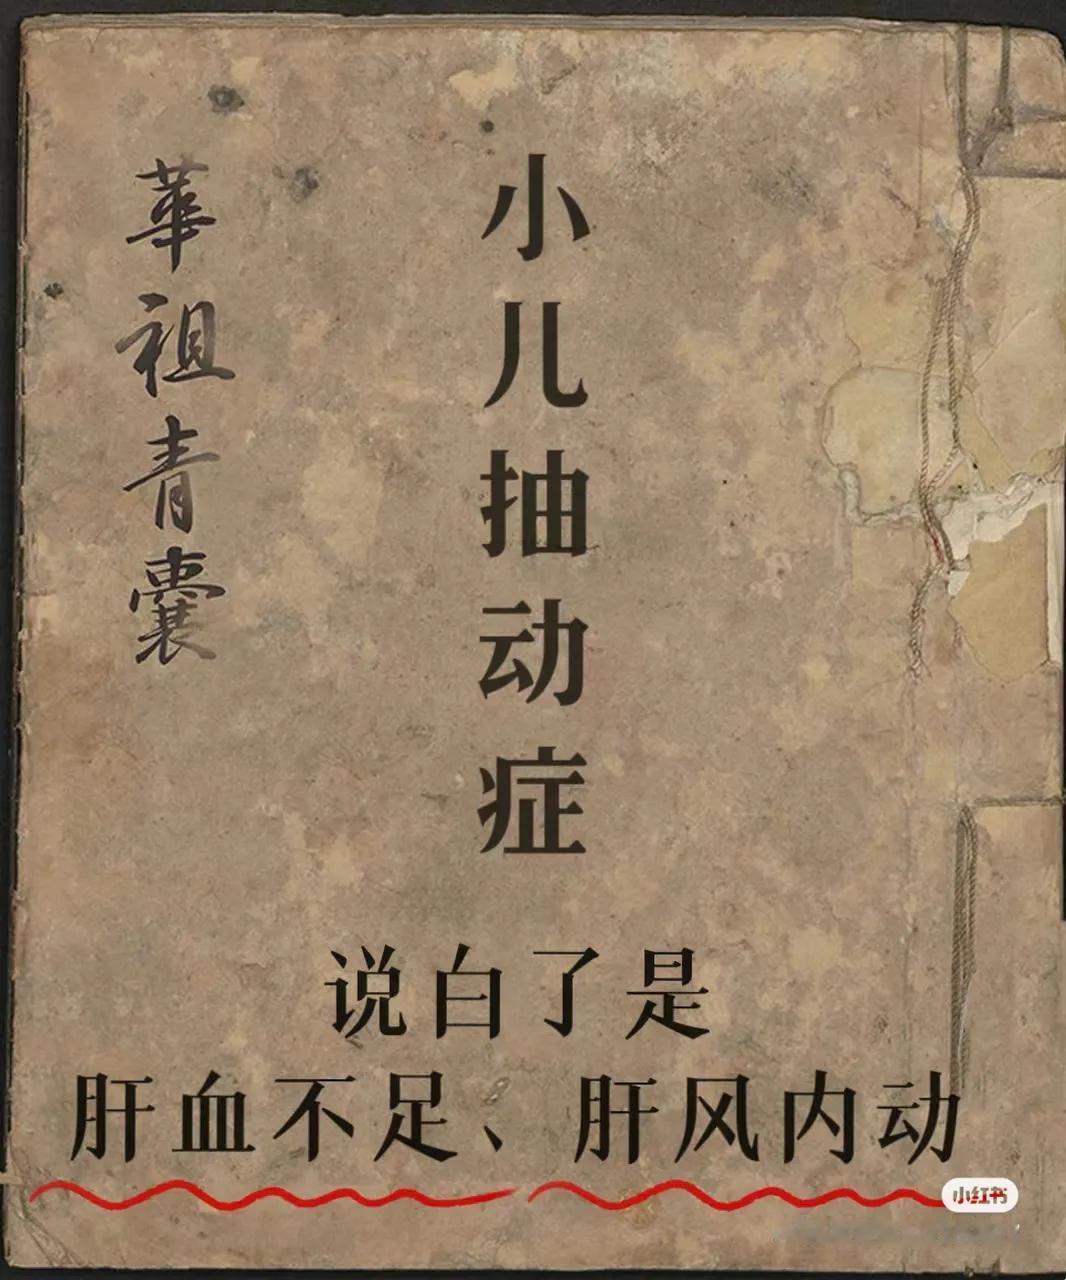 小儿抽动症
華祖青囊
说白了是
肝血不足、肝风内动
小红书